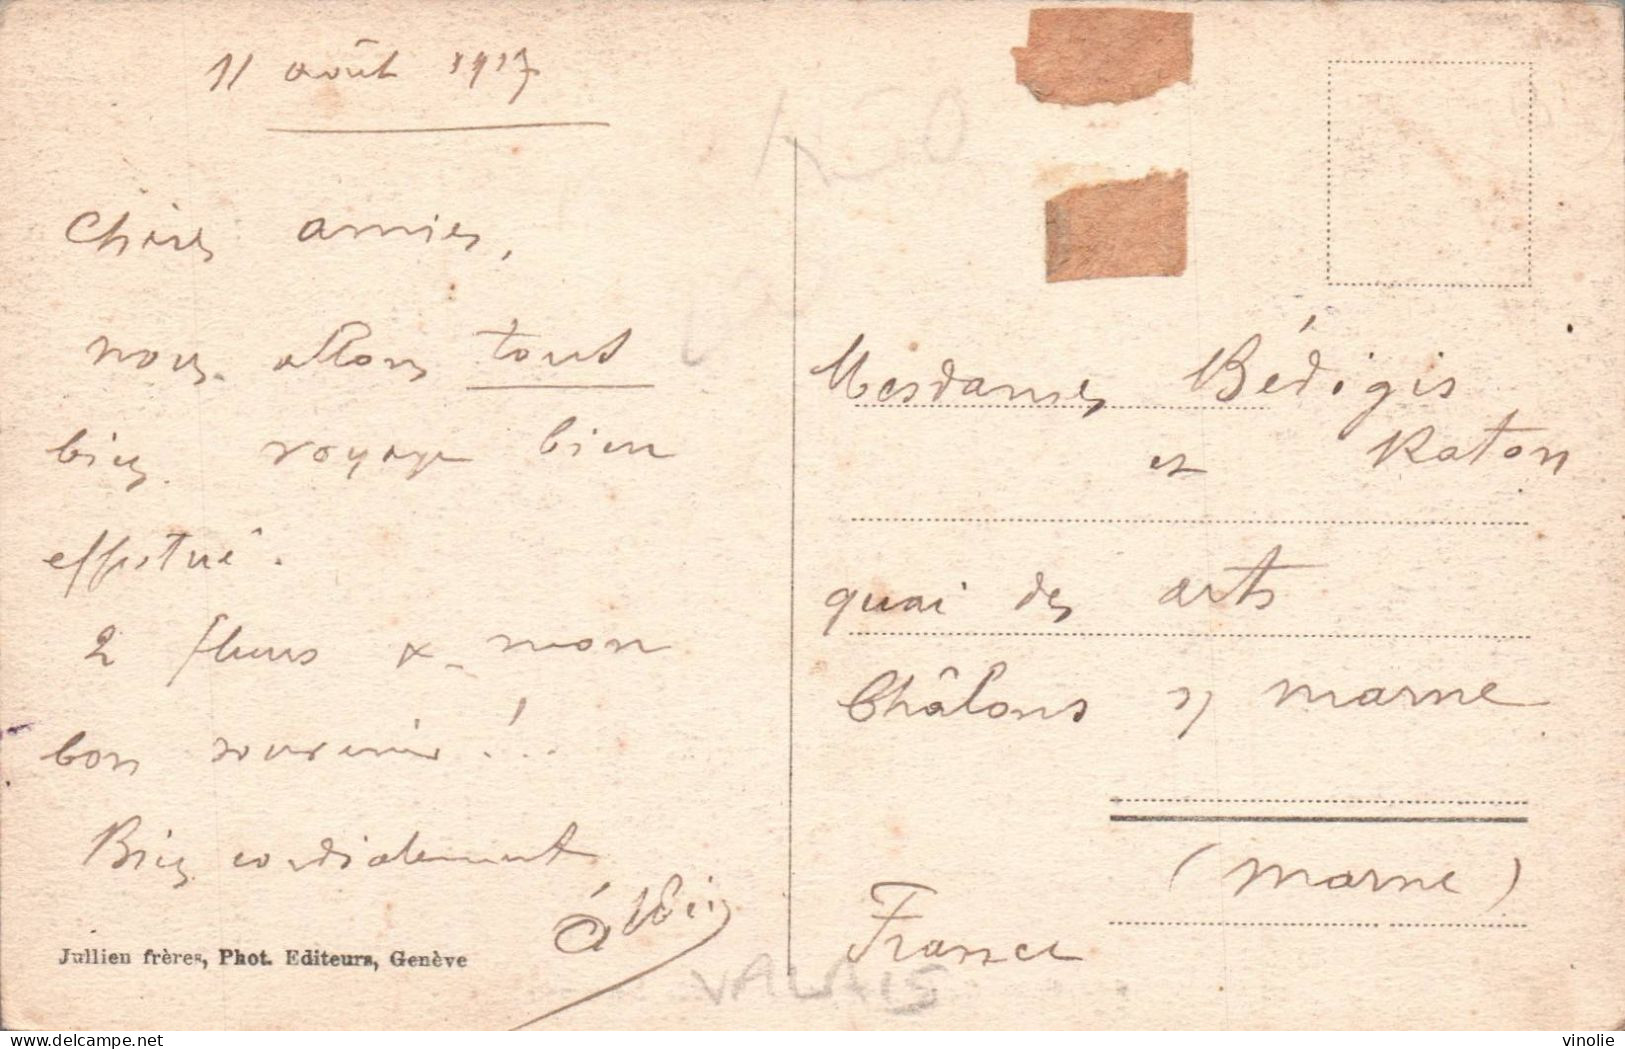 11 août 1917
Chères amies,
nous allons tout
bien. voyage bien
effectué.
2 fleurs & mon
bon souvenir !...
Bien cordialement
Albin
Jullien frères, Phot. Editeurs, Genève
Mesdames Bédigis
et Raton
quai des arts
Châlons s/ marne
(marne)
France
VALAIS
delcampe.net
vinolie